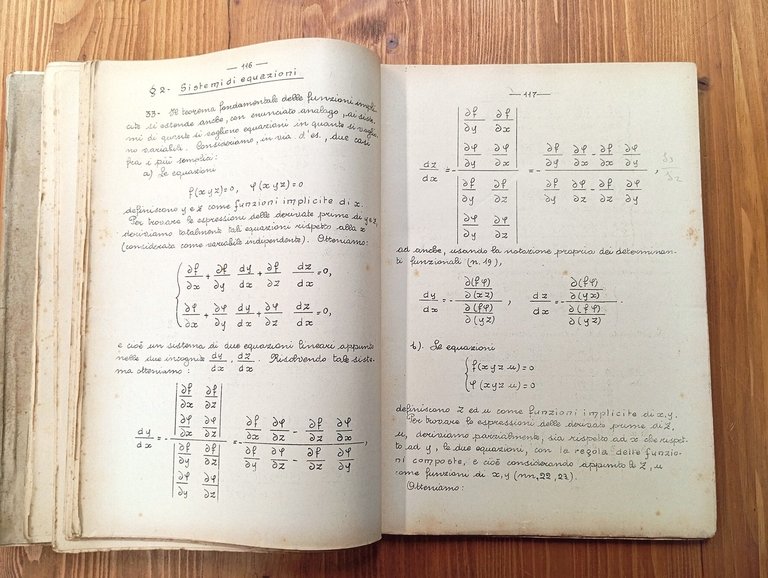 — 116 —
§ 2 - Sistemi di equazioni
33 - Il teorema fondamentale delle funzioni impli-
cite si estende anche, con enunciato analogo, ai siste-
mi di quante si vogliono equazioni in quante si voglio-
no variabili. Consideriamo, in via d'es., due casi
fra i più semplici:
a) Le equazioni
f(xyz)=0, φ(xyz)=0
definiscono y e z come funzioni implicite di x.
Per trovare le espressioni delle derivate prime di y e z,
deriviamo totalmente tali equazioni rispetto alla x
(considerata come variabile indipendente). Otteniamo:
∂f/∂x + ∂f/∂y dy/dx + ∂f/∂z dz/dx = 0,
∂φ/∂x + ∂φ/∂y dy/dx + ∂φ/∂z dz/dx = 0,
e cioè un sistema di due equazioni lineari appunto
nelle due incognite dy/dx, dz/dx. Risolvendo tale siste-
ma otteniamo:
dy/dx = - |∂f/∂x ∂f/∂z ; ∂φ/∂x ∂φ/∂z| / |∂f/∂y ∂f/∂z ; ∂φ/∂y ∂φ/∂z| = - (∂f/∂x ∂φ/∂z - ∂f/∂z ∂φ/∂x) / (∂f/∂y ∂φ/∂z - ∂f/∂z ∂φ/∂y),
— 117 —
dz/dx = - |∂f/∂y ∂f/∂x ; ∂φ/∂y ∂φ/∂x| / |∂f/∂y ∂f/∂z ; ∂φ/∂y ∂φ/∂z| = - (∂f/∂y ∂φ/∂x - ∂f/∂x ∂φ/∂y) / (∂f/∂y ∂φ/∂z - ∂f/∂z ∂φ/∂y),
od anche, usando la notazione propria dei determinan-
ti funzionali (n. 19),
dy/dx = - (∂(fφ)/∂(xz)) / (∂(fφ)/∂(yz)), dz/dx = - (∂(fφ)/∂(yx)) / (∂(fφ)/∂(yz)).
b). Le equazioni
f(xyzu)=0
φ(xyzu)=0
definiscono z ed u come funzioni implicite di x, y.
Per trovare le espressioni delle derivate prime di z,
u, deriviamo parzialmente, sia rispetto ad x che rispet-
to ad y, le due equazioni, con la regola delle funzio-
ni composte, e cioè considerando appunto le z, u
come funzioni di x, y (nn. 22, 23).
Otteniamo: